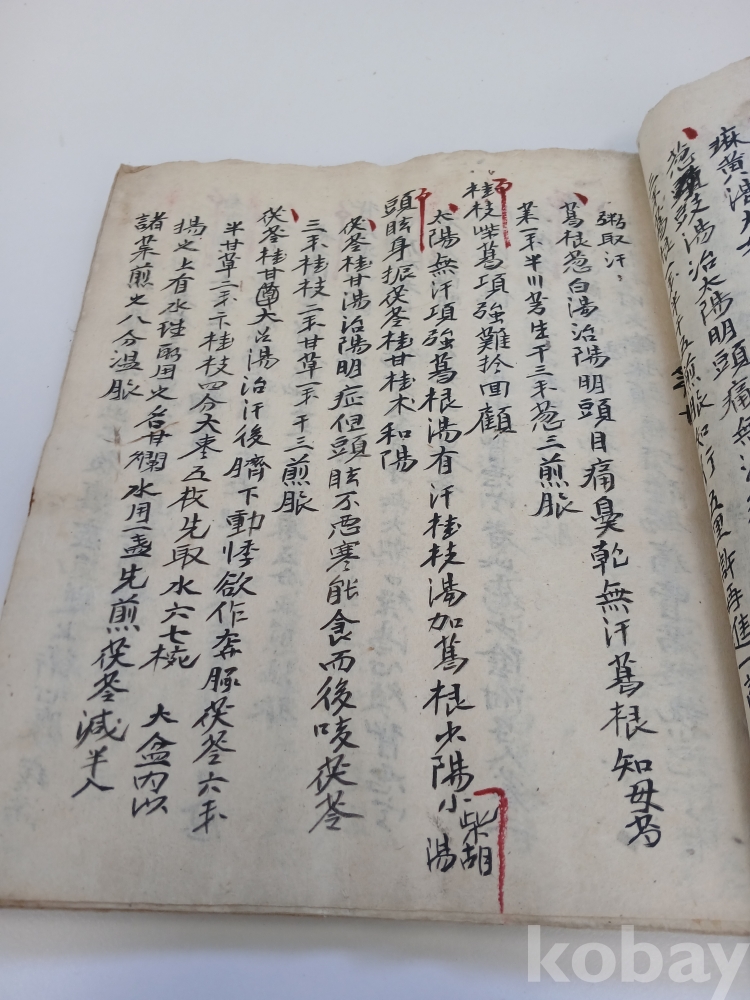 麻黃湯
葱豉湯治太陽明頭痛無汗
煎服如行五里許再進一
粥取汗
葛根葱白湯治陽明頭目痛鼻乾無汗葛根知母芍
藥一禾半川芎生干三禾葱三煎服
桂枝柴葛項強難拎回顧
太陽無汗項強葛根湯有汗桂枝湯加葛根少陽小柴胡湯
頭眩身振茯苓桂甘桂术和陽
茯苓桂甘湯治陽明症但頭眩不恶寒能食而後咳茯苓
三禾桂枝二禾甘草一禾干三煎服
茯苓桂甘草大枣湯治汗後臍下動悸欲作奔豚茯苓六禾
半甘草二禾桂枝四分大枣五枚先取水六七椀大盆內以
揚之上有水珠取用之名甘爛水用一盞先煎茯苓減半入
諸藥煎之八分溫服
kobay